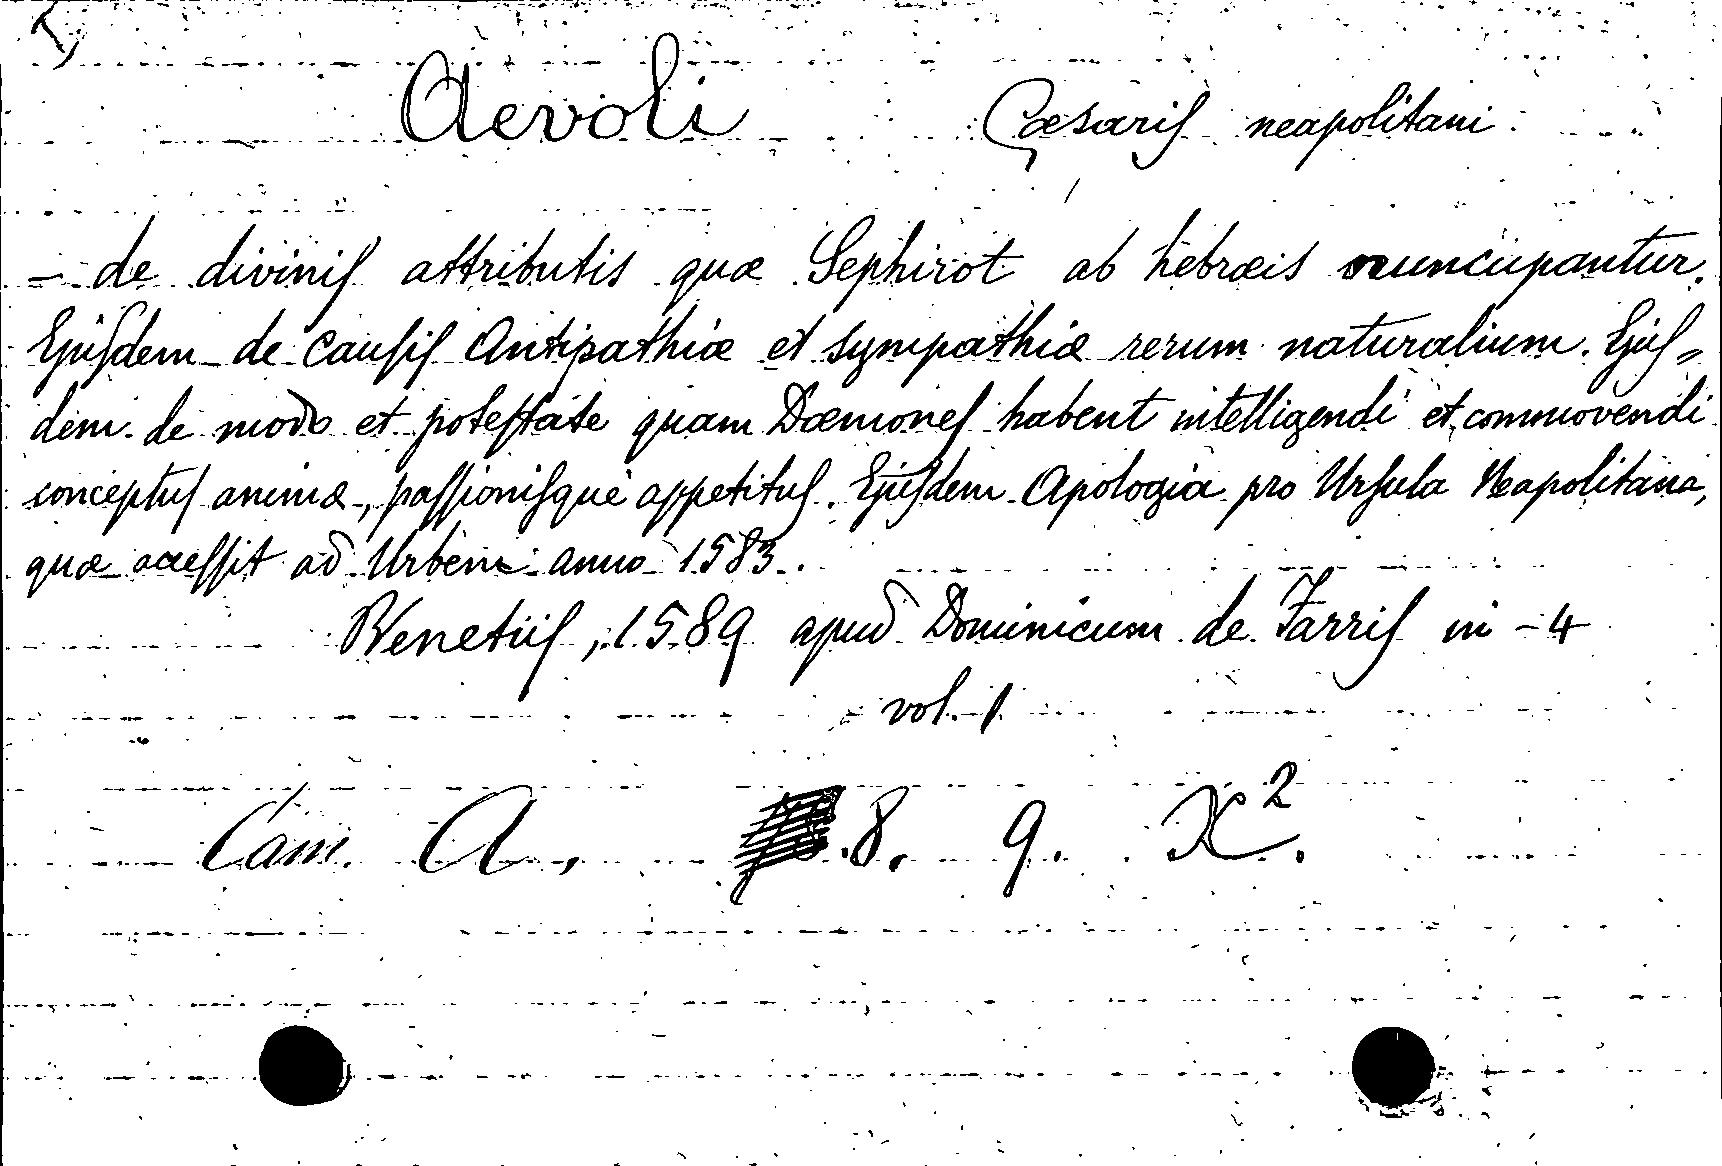 Aevoli Cæsaris neapolitani
– de divinis attributis quæ Sephirot ab hebræis nuncupantur.
Ejusdem de causis Antipathiæ et sympathiæ rerum naturalium. Ejus=
dem de modo et potestate quam Dæmones habent intelligendi et commovendi
conceptus animæ, passionisque appetitus. Ejusdem Apologia pro Ursula Neapolitana,
quæ accessit ad Urbem anno 1583.
Venetiis, 1589 apud Dominicum de Farris in-4
vol. 1
Cam. A. 8. 9. X².